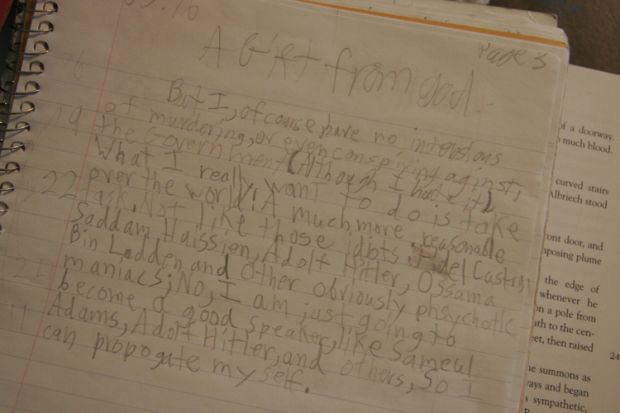 Page 3
A Gift from god.
But I, of course, have no intensions
of murdering, or even conspiring against,
the Government (Although I hate it).
What I really want to do is take
over the world! A much more reasonable
task. Not like those idiots: Fidel Castro,
Saddam Haission, Adolf Hitler, Ossama
Bin Ladden, and other obviously phsychotic
maniacs; No, I am just going to
become a good speaker, like Sameul
Adams, Adolf Hitler, and others, so I
can propogate myself.
of a doorway.
much blood.
curved stairs
Albriech stood
ont door, and
posing plume
the edge of
whenever he
on a pole from
ath to the cen-
et, then raised
24
e summons as
ways and began
s sympathetic,